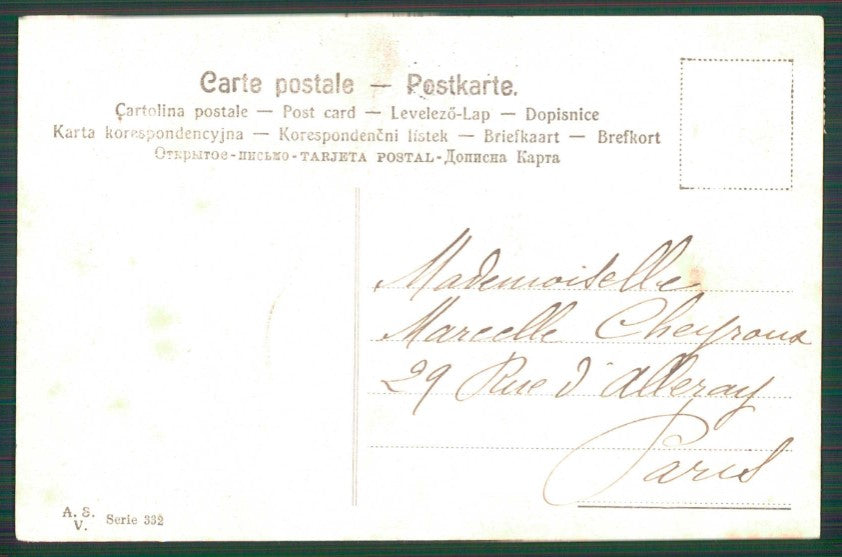 Carte postale — Postkarte.
Çartolina postale — Post card — Levelező-Lap — Dopisnice
Karta korespondencyjna — Korespondenčni listek — Briefkaart — Brefkort
Открытое-письмо-TARJETA POSTAL-Дописна Карта
Mademoiselle
Marcelle Cheyroux
29 Rue d'Alleray
Paris
A. S. V. Serie 332